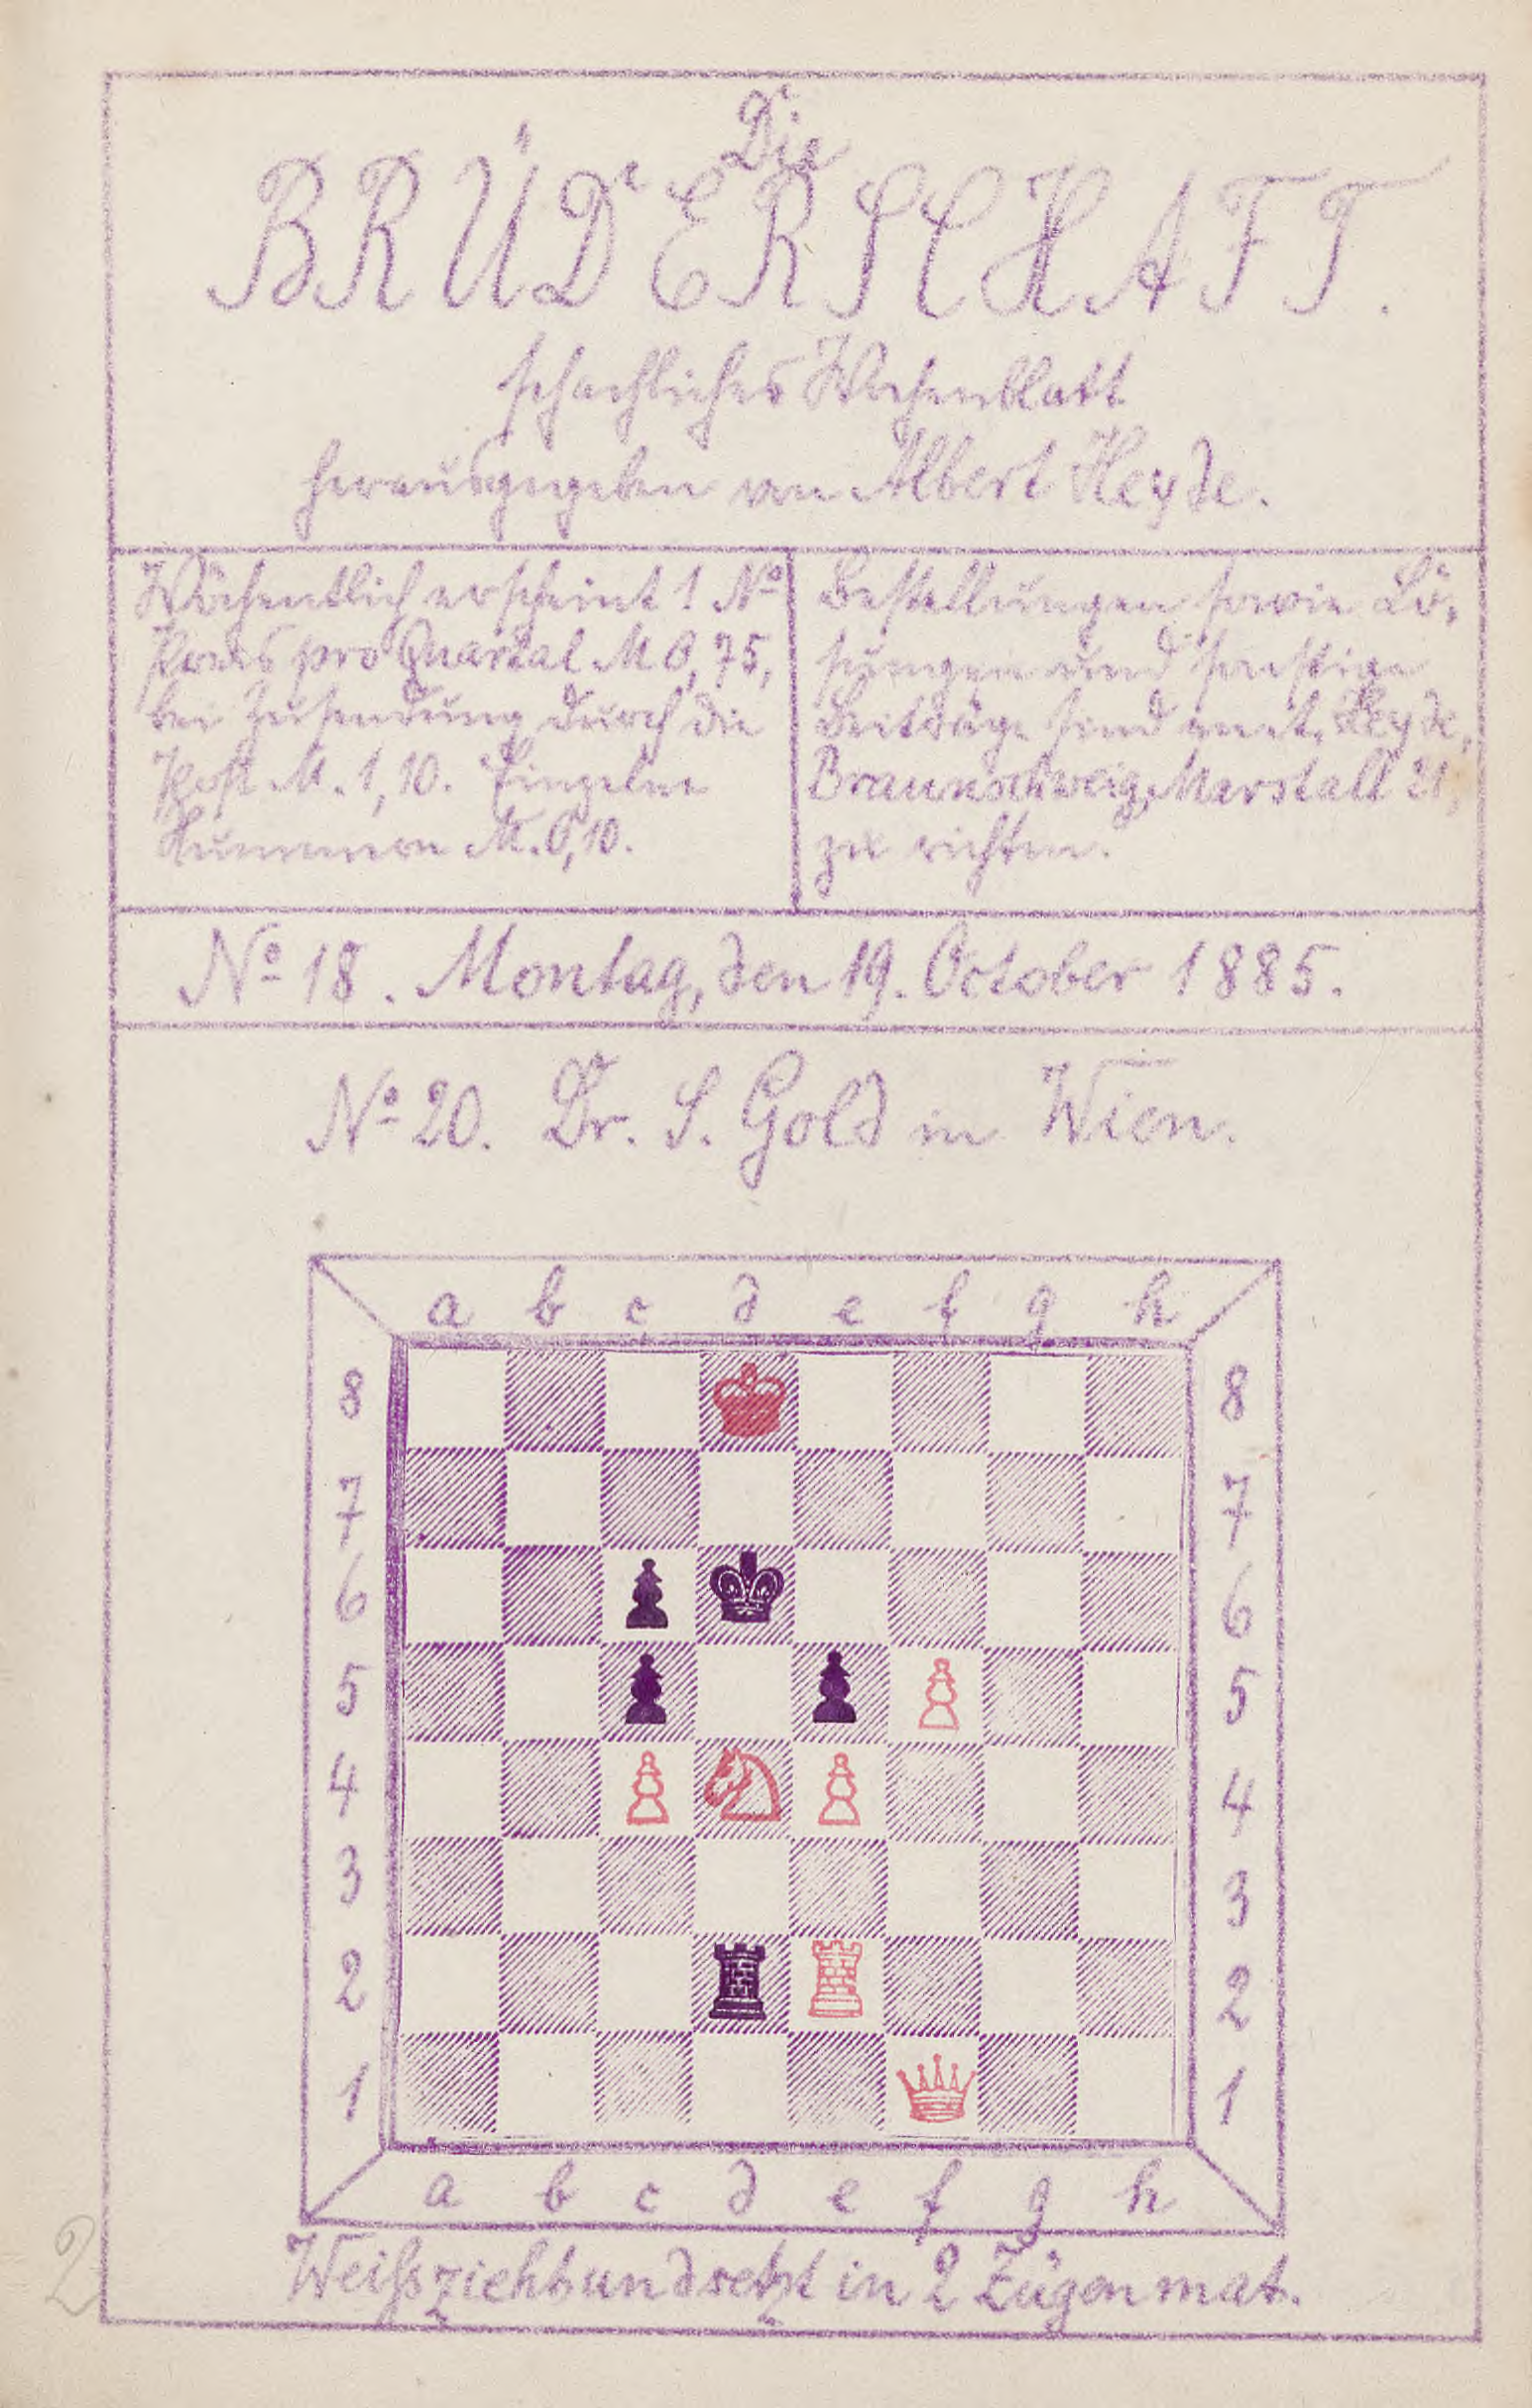 Die
BRÜDERSCHAFT.
schachliches Wochenblatt
herausgegeben von Albert Heyde.
Wöchentlich erscheint 1 No
Preis pro Quartal M 0,75,
bei Zusendung durch die
Post M. 1,10. Einzelne
Nummern M. 0,10.
Bestellungen sowie Lö-
sungen und sonstige
Beiträge sind an A. Heyde,
Braunschweig, Marstall 21,
zu richten.
No 18. Montag, den 19. October 1885.
No 20. Dr. S. Gold in Wien.
a b c d e f g h
8 8
7 7
6 6
5 5
4 4
3 3
2 2
1 1
a b c d e f g h
Weiß zieht und setzt in 2 Zügen mat.
2